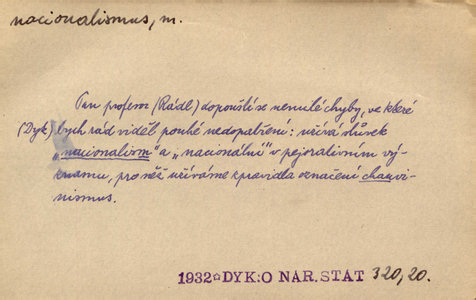 nacionalismus, m.
Pan profesor (Rádl) dopouští se nemilé chyby, ve které
(Dyk) bych rád viděl pouhé nedopatření: užívá slůvek
„nacionalism“ a „nacionální“ v pejorativním vý-
znamu, pro něž užíváme zpravidla označení chauvi-
nismus.
1932☆DYK:O NAR.STAT 320,20.